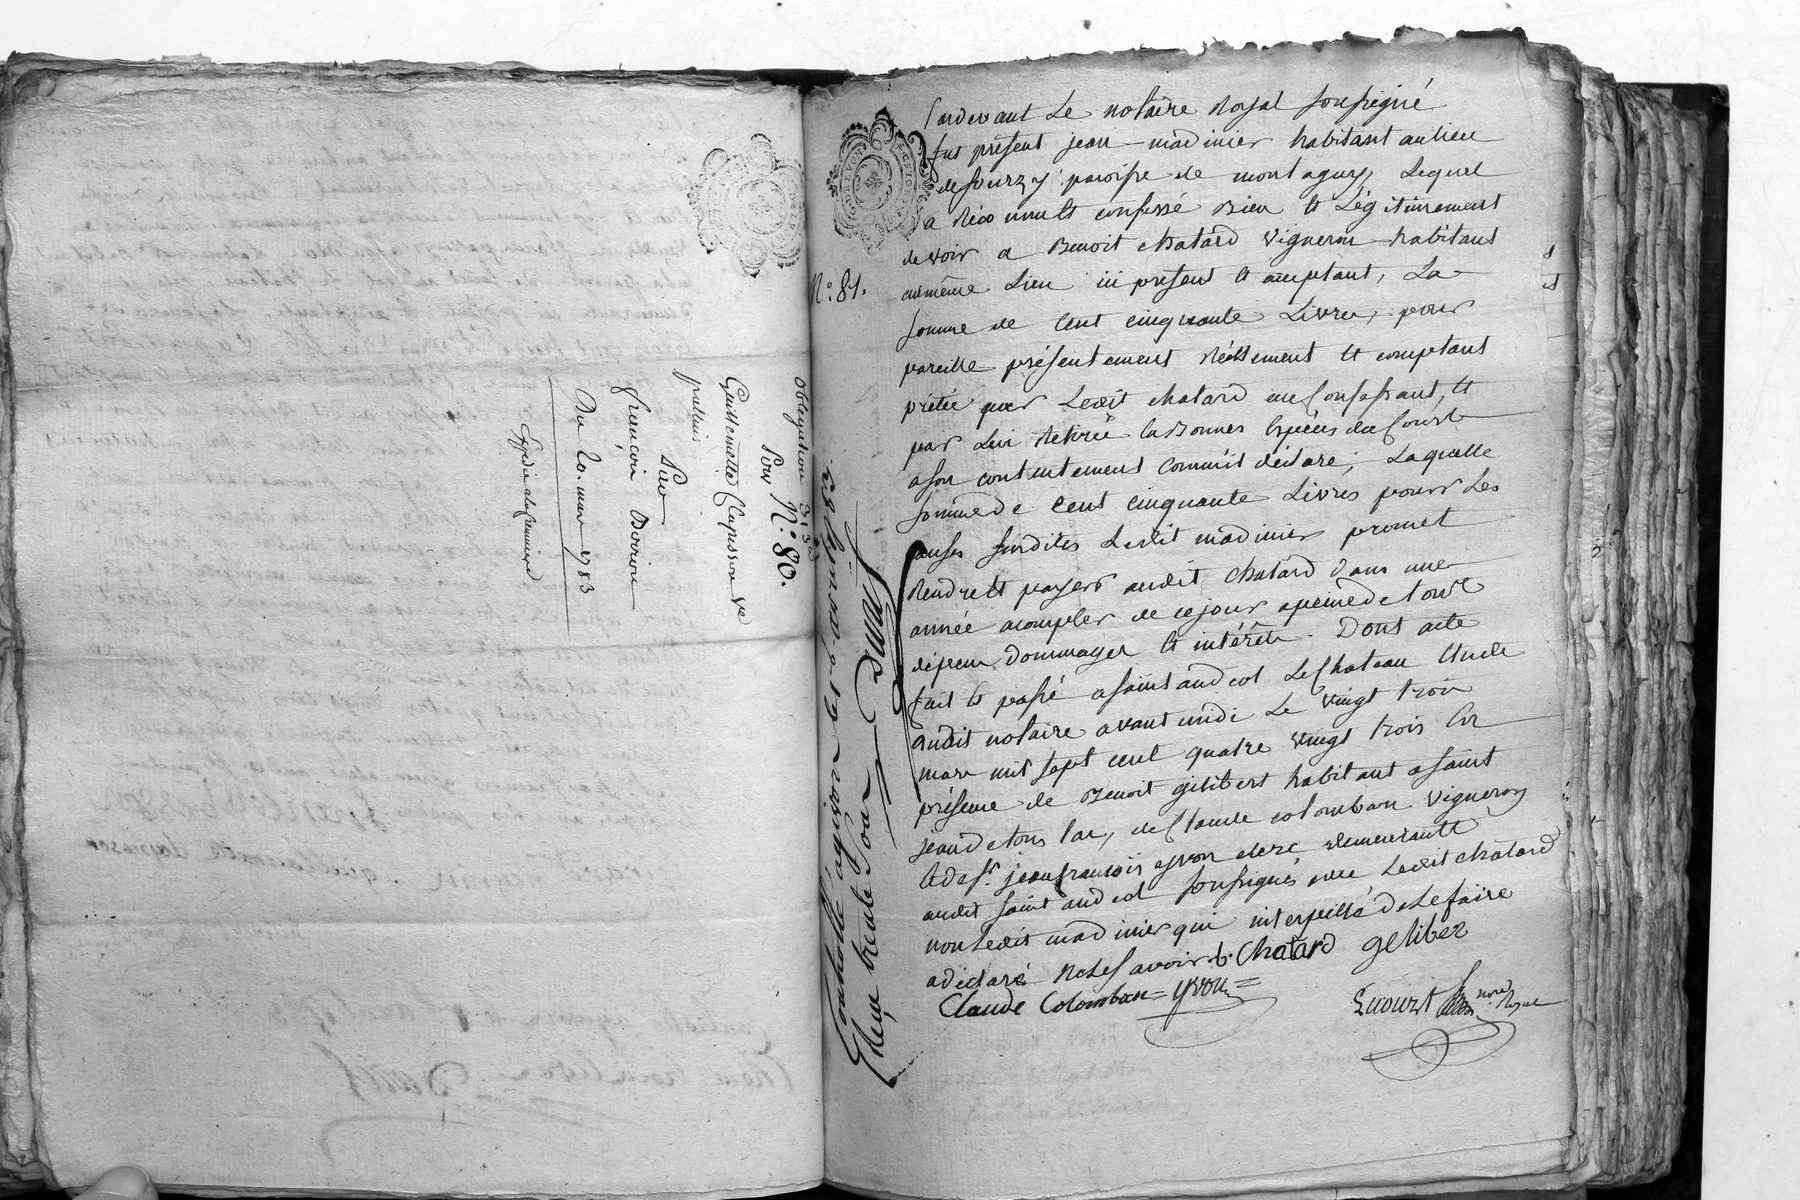 obligation
N.° 80.
Pour
Guillemette Clapisson ve
palluis
Par
françois Boiriou
Du 20. mars 1783
Expedié a la premiere
N.° 81.
Pardevant Le notaire Royal soussigné
fut présent jean madinier habitant au lieu
de sourzy paroisse de montagny, Lequel
a Réconnu et confessé Bien et Légitimement
devoir a Benoit chatard vigneron habitant
au même Lieu ici présent et acceptant, La
somme de Cent cinquante Livres, pour
pareille présentement Réellement et comptant
prétée par Ledit chatard au Confessant, et
par Lui Retirée en Bonnes Especes du Cours
a son contentement comm'il déclare; Laquelle
somme de Cent cinquante Livres pour Les
causes susdites Ledit madinier promet
Rendre et payer audit chatard dans une
année a compter de ce jour a peine de tous
dépens, dommages et intérêts. Dont acte
fait et passé a saint andéol Le Chateau Etude
dudit notaire avant midi Le vingt trois
mars mil sept cent quatre vingt trois En
présence de Benoit gelibert habitant a saint
jean de tous las, de Claude colomban vigneron
et de sr. jean françois yvon clerc demeurants
audit saint andéol soussignés avec Ledit chatard
non Ledit madinier qui interpellé de Le faire
a déclaré ne Le savoir. b. Chatard gelibez
Claude Colomban = yvon =
not. Royal
Controllé a givors le 1er avril 1783
Reçu trente sous